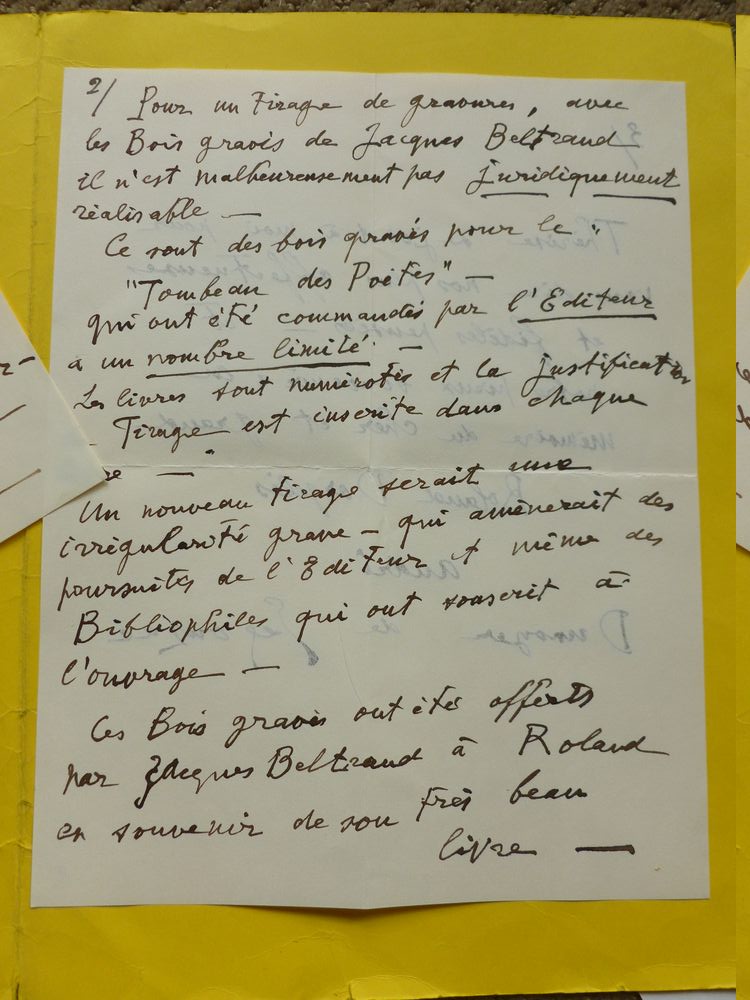 2/ Pour un Tirage de gravures, avec
les Bois gravés de Jacques Beltrand
il n'est malheureusement pas juridiquement
réalisable —
Ce sont des bois gravés pour le "
"Tombeau des Poètes" —
qui ont été commandés par l'Editeur
à un nombre limité. —
Les livres sont numérotés et la justification
Tirage est inscrite dans chaque
re — "
Un nouveau tirage serait une
irrégularité grave — qui amènerait des
poursuites de l'Editeur et même des
Bibliophiles qui ont souscrit à
l'ouvrage —
Ces Bois gravés ont été offerts
par Jacques Beltrand à Roland
en souvenir de son très beau
livre —